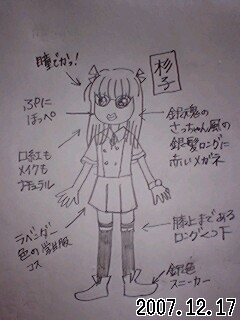 瞳でかっ!
杉子
ぷにぷに
ほっぺ
銀魂の
さっちゃん風の
銀髪ロングに
赤いメガネ
口紅も
メイクも
ナチュラル
ラベンダー
色の
コス
膝上まである
ロングくつ下
銀色
スニーカー
2007.12.17